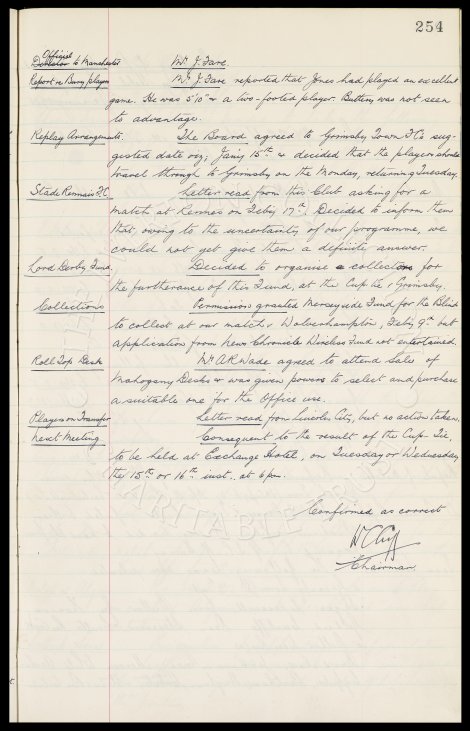 254
Official
Director to Manchester Mr. J. Fare.
Report re Bury players Mr. J. Fare reported that Jones had played an excellent
game. He was 5'10" & a two-footed player. Buttery was not seen
to advantage.
Replay Arrangements. The Board agreed to Grimsby Town F.C's sug-
gested date viz; Jan'y 15th & decided that the players should
travel through to Grimsby on the Monday, retaining Tuesday.
Stade Rennais F.C. Letter read from this Club asking for a
match at Rennes on Feb'y 17th. Decided to inform them
that, owing to the uncertainty of our programme, we
could not yet give them a definite answer.
Lord Derby Fund. Decided to organise a collection for
the furtherance of this Fund, at the Cup tie v Grimsby.
Collections Permission granted Merseyside Fund for the Blind
to collect at our match v Wolverhampton, Feb'y 9th but
application from News Chronicle Wireless Fund not entertained.
Roll Top Desk Mr A R Wade agreed to attend Sales of
Mahogany Desks & was given powers to select and purchase
a suitable one for the Office use.
Players on Transfer Letter read from Lincoln City, but no action taken.
Next Meeting. Consequent to the result of the Cup-Tie,
to be held at Exchange Hotel, on Tuesday or Wednesday
the 15th or 16th inst. at 6 pm.
Confirmed as correct
W C Cuff
Chairman
CHARITABLE